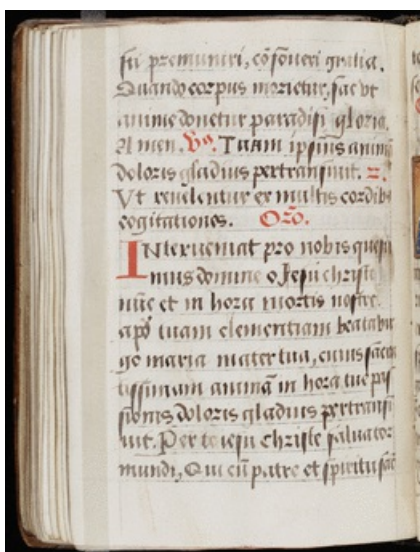 sti premuniri, cōfoueri gratia.
Quando corpus morietur, fac vt
anime donetur paradisi gloria.
Amen. Vs. Tuam ipsius animā
doloris gladius pertransiuit. R.
Vt reuelentur ex multis cordibꝰ
cogitationes. Orō.
INterueniat pro nobis quesu
mus domine o Jesu christe
nūc et in hora mortis nostre.
apō tuam clementiam beata vir
go maria mater tua, cuius sacra
tissimam animā in hora tue pas
sionis doloris gladius pertransi
uit. Per te iesu christe saluator
mundi, Qui cū patre et spiritu san